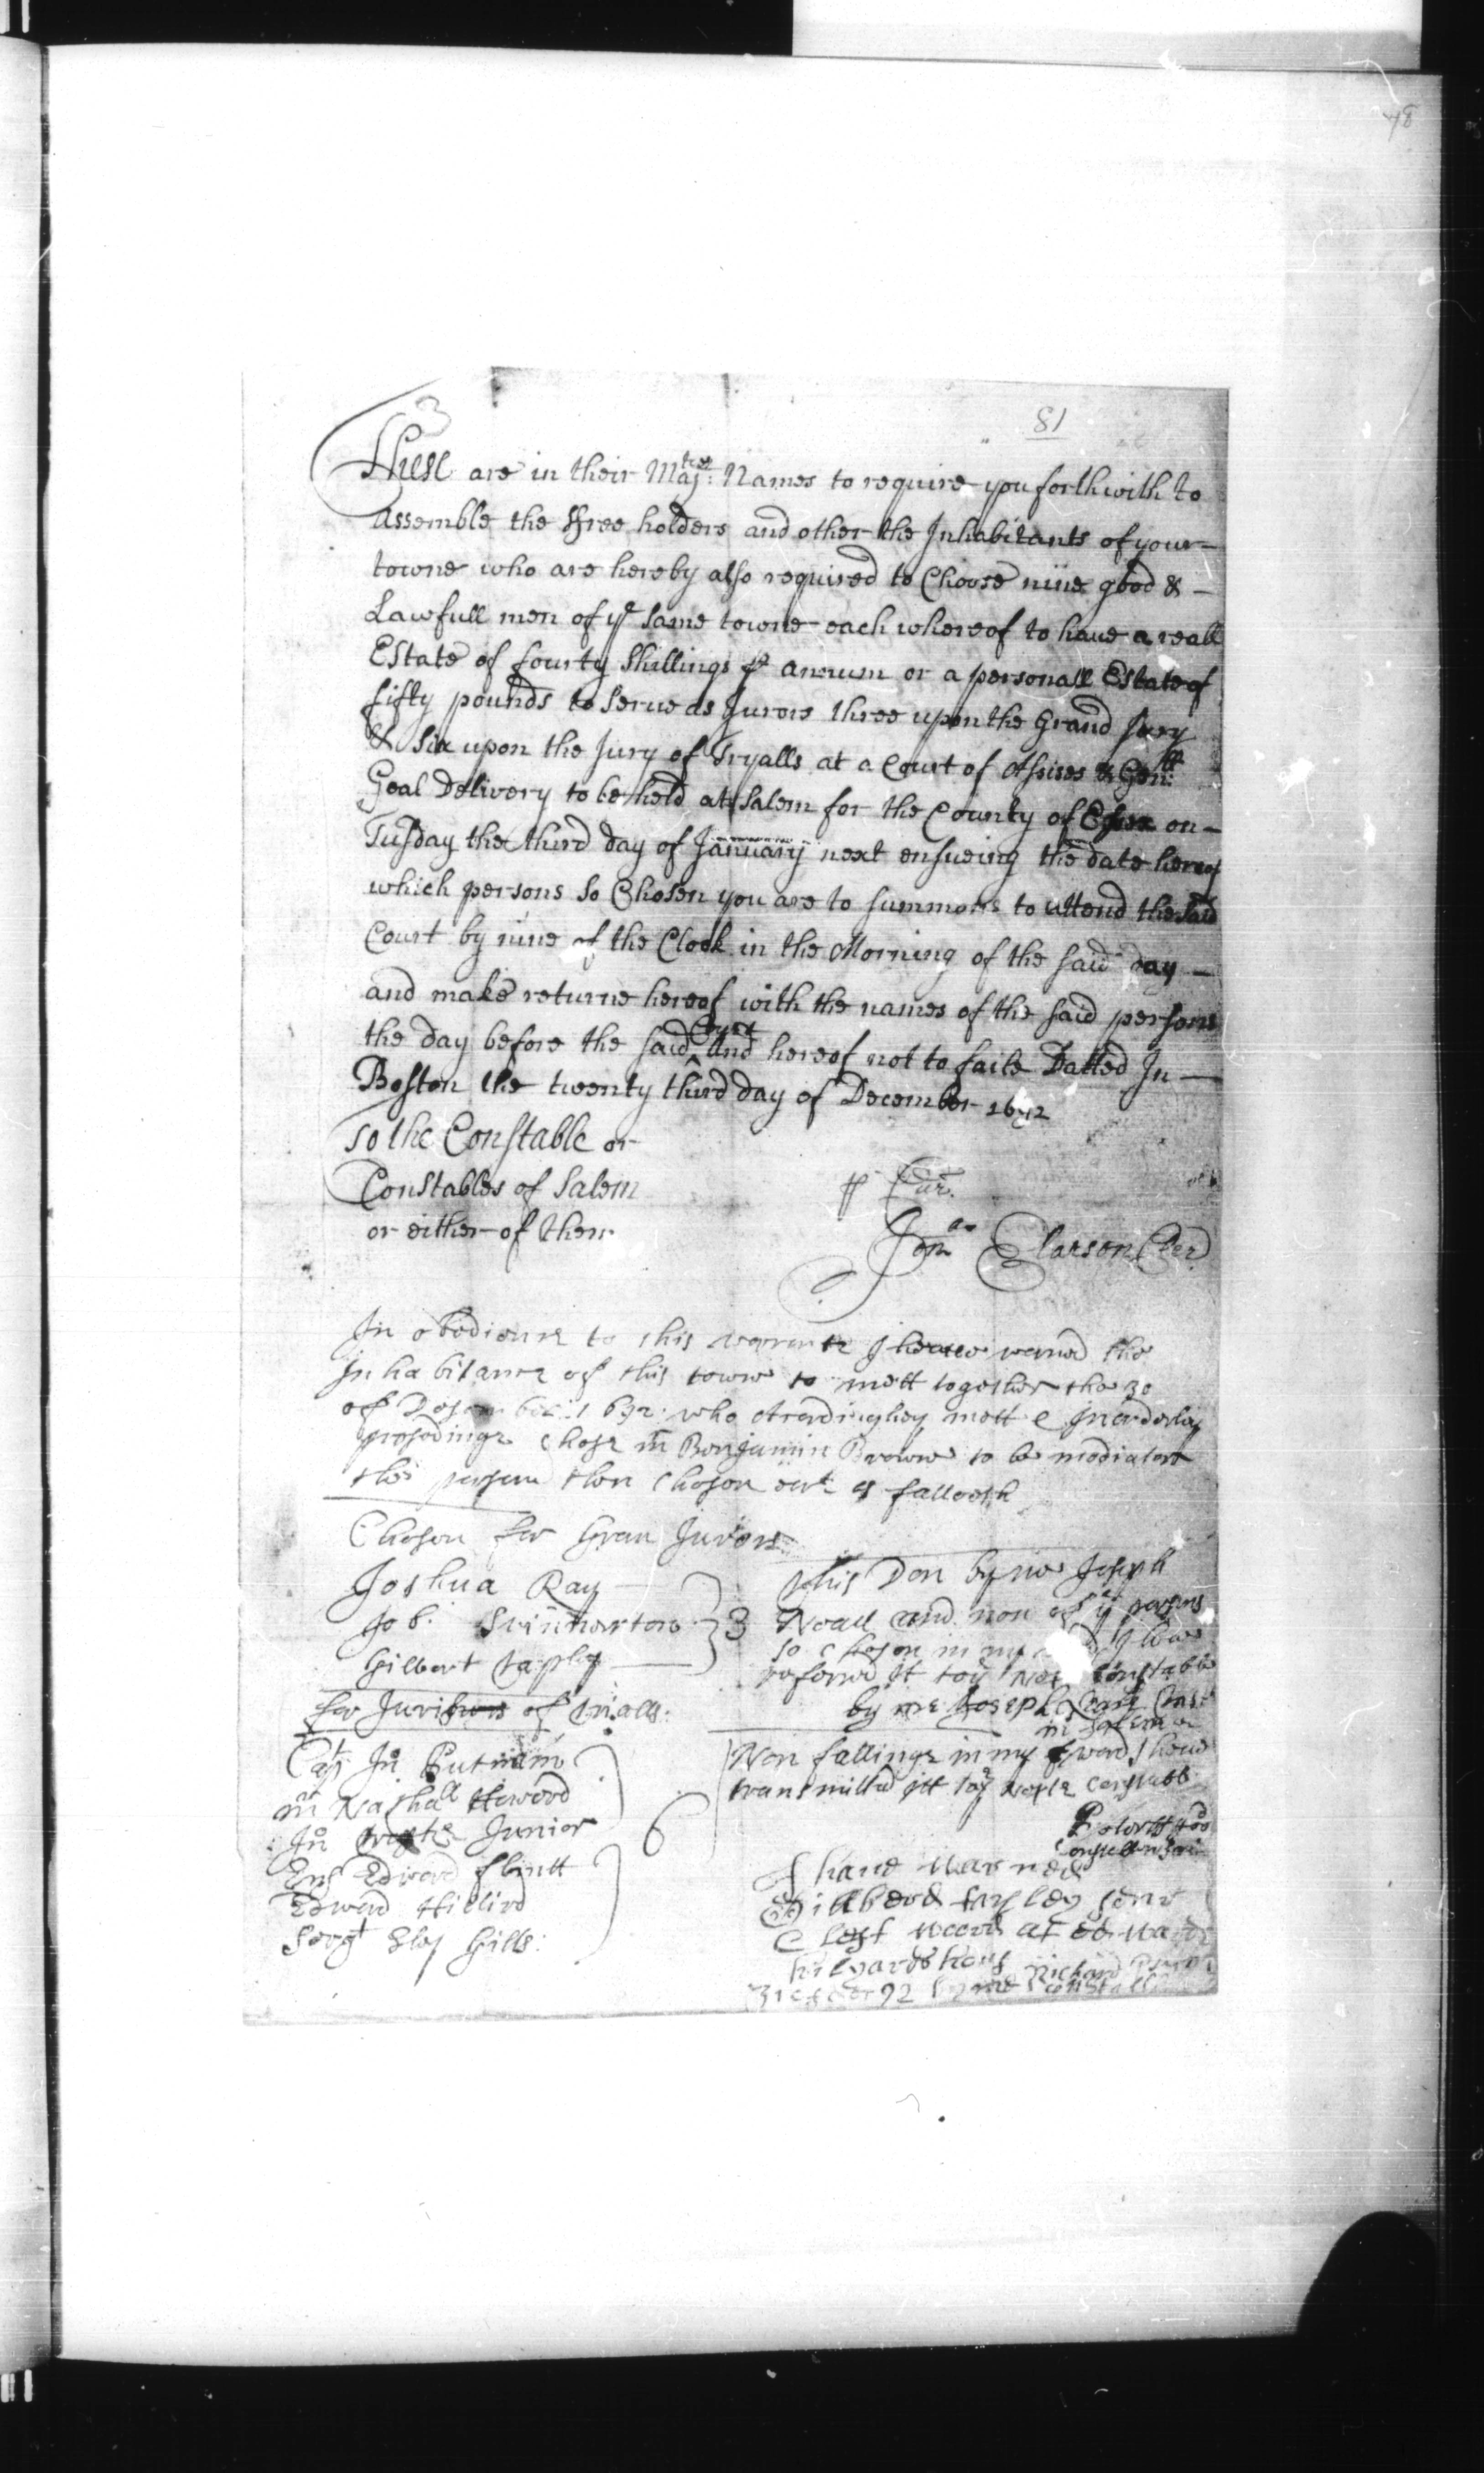 78
81
These are in their Maj:ties Names to require you forthwith to
assemble the ffree holders and other the Inhabitants of your
towne who are hereby also required to Choose nine good &
Lawfull men of ye same towne each whereof to have a reall
Estate of fourty Shillings p annum or a personall Estate of
fifty pounds to serve as Jurors three upon the Grand Jury
& six upon the Jury of Tryalls at a Court of Assises & Gen:ll
Goal Delivery to be held at Salem for the County of Essex on
Tusday the third day of January next ensueing the date hereof
which persons so Chosen you are to summons to attend the said
Court by nine of the Clock in the Morning of the said day
and make returne hereof with the names of the said persons
the day before the said ^ Court And hereof not to faile Datted In
Boston the twenty third day of December 1692
To the Constable or
Constables of Salem
or either of them
p Cur.
Jona Elatson Cler
In obedience to this warrante I have warned the
Inhabitance of this towne to mett together the 30
of Desember 1692 who Acordinghly mett & In orderly
prosedings Chose mr Benjamin Browne to be modiator
the persons then Chosen are as falloeth
Chosen for Gran Jurors
Joshua Ray
Job Swinnarton
Gilbert Tapley
3
for Jurishons of trialls:
Capt Jn Putnam
mr Nathall Howord
Jn Junior
Ens Edward flintt
Edward Hillird
Sergt Elaj Gills:
6
this Don by me Joseph
Neall and non of ye persons
so Chosen in my I have
referred it to ye Next Constable
by me Joseph Neale Const
in Salem
Non fallinge in my ward I have
transmitted itt to ye Nexte Constable
I have warned
Gillberd tapley senr
& left word at Edwards
hilyards hous
31 of der 92 by me Richard Constall